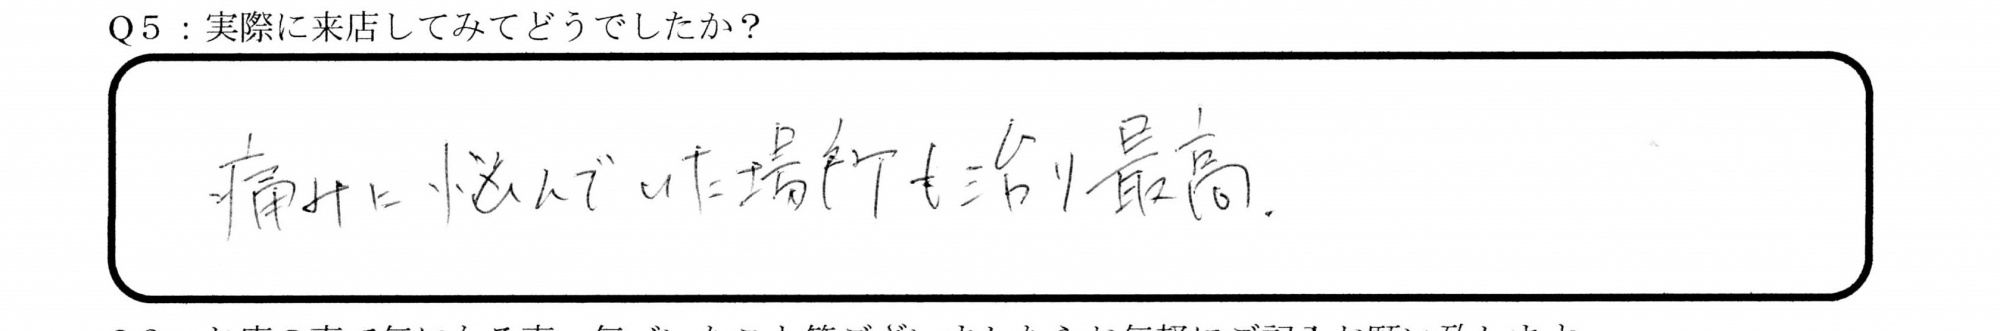 Q5：実際に来店してみてどうでしたか？
痛みに悩んでいた場所も治り最高.